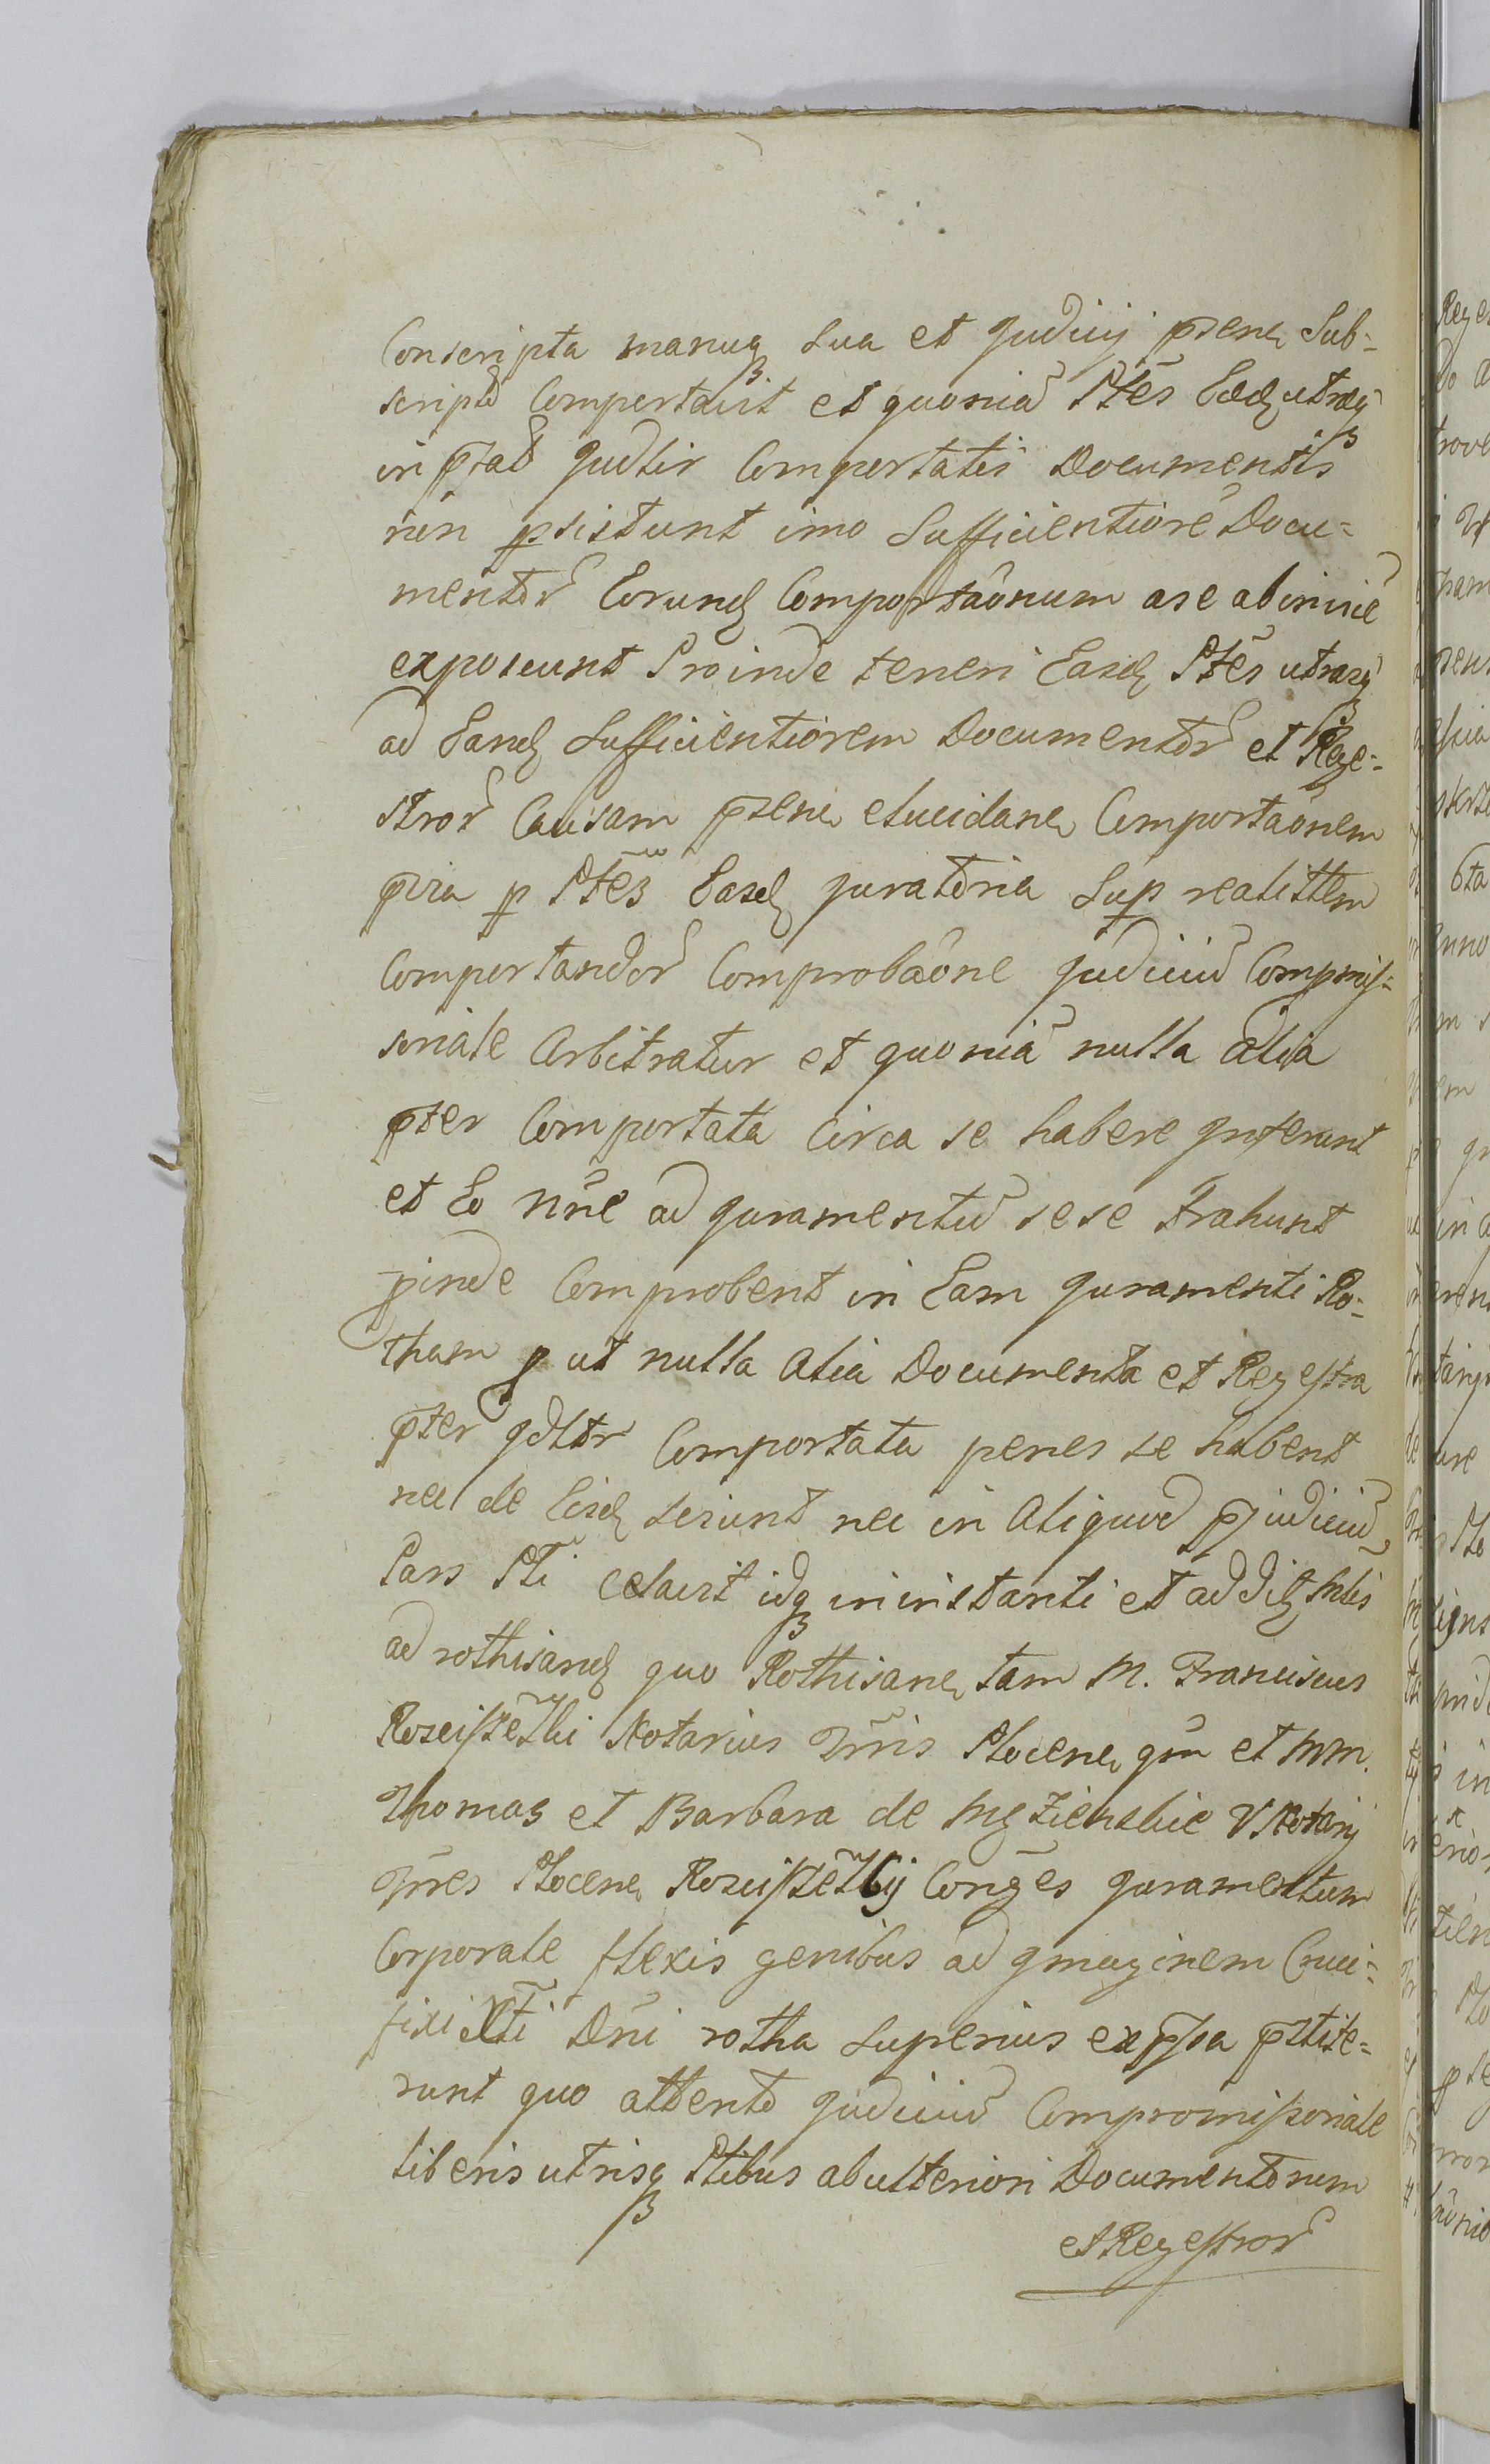 Conscripta manuq sua et Judicij pñen Sub-
scripta Comportavit et quoniã Ptes Eaed utraq
in prad Judlir Comportatis Documentis
non psistunt imo Sufficientiorẽ Docu-
mentor Eorund Comportaõnum a se abinvice
exposcunt Proinde teneri Easd Ptes utrasq
ad Eand Sufficientiorem Documentor et Rege-
stror Causam pñen elucidan Comportaõnem
pvia p Ptes Easd juratoria Sup realittem
Comportandor Comprobaõne Judiciũ Compmis-
soriale Arbitratur et quoniã nulla alia
pter Comportata Circa se habere Inferunt
et Eo nñe ad Juramentũ sese trahunt
pinde Comprobent in Eam Juramenti Ro-
tham q ut nulla alia Documenta et Regestra
pter Jdltr Comportata penes se habent
nec de Eisd sciunt nec in aliquod pjudiciũ
Pars Pti celavit idq in instanti et addit Mtis
ad rothisand quo Rothisane tam M. Franciscus
Rosciszewski Notarius Tñris Plocen qm et MM.
Thomas et Barbara de Mezienskie V Notarij
Tñres Plocen Rosciszewscij Conges Juramentum
Corporale flexis genibus ad Imaginem Cruci-
fixi Xti Dñi rotha superius expssa pstite-
runt quo attento Judiciũ Compromissoriale
liberis utrisq Ptibus ab ulteriori Documentorum
et Regestror